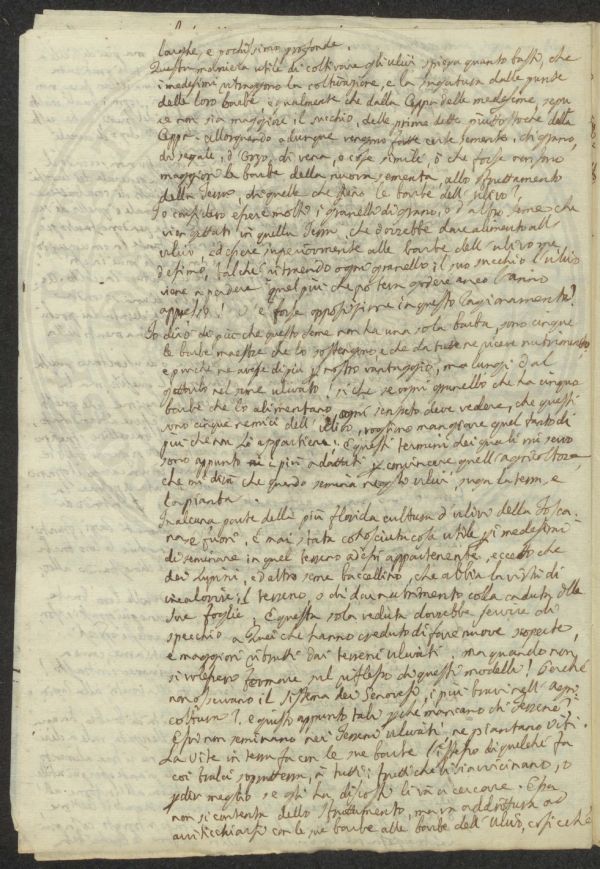 larghe, e pochissimo profonde.
Questa maniera utile di coltivare gli ulivi spiega quanto basti, che
i medesimi ritraggono la coltivazione, e la ingratura dalle punte
delle loro barbe, egualmente che dalla Ceppa delle medesime, sepu
re non sia maggiore il succhio delle prime dette piuttostoche della
Ceppa. Allorquando adunque verranno fatte certe semente, di grano,
di segale, d'Orzo, di vena, o cose simili, o che forse non sono
maggiori le barbe della nuova sementa, allo sfruttamento
della Terra, di quelle che sieno le barbe dell'ulivo?
Io considero essere molti i granelli di grano, o d'altro seme che
vien gettati in quella Terra, che dovrebbe dare alimento all'
ulivo, ed essere superiormente alle barbe dell'ulivo me
desimo, talchè ritraendo ogni granello il suo succhio l'ulivo
viene a perdere quel più che poteva godere anco l'anno
appresso! V'è forse opposizione in questo ragionamento?
Io dirò di più che questo seme non ha una sola barba, sono cinque
le barbe maestre che lo sostengono, e che da tutte ne riceve nutrimento,
e perchè ne avesse di più p nostro vantaggio, ma lungi dal
gettarlo nel seme ulivato! si che se ogni granello che ha cinque
barbe che lo alimentano, ogni sensato deve vedere, che questi
sono cinque nemici dell'ulivo, vogliono mangiare quel tanto di
più che non Li appartiene. E questi termini dei quali mi servo
sono appunto i più adattati p convincere quell'agricoltore,
che mi dica che quando semina negli ulivi, suga la terra, e
la pianta.
In alcuna parte della più florida cultura d'ulivi della Tosca
na e fuori, È mai stata conosciuta cosa utile p i medesimi
di seminare in quel terreno ad essi appartenente, eccetto che
dei Lupini, ed altro seme baccellino, che abbia la virtù di
incalorire il terreno, o di dar nutrimento colla caduta delle
sue foglie. E questa sola veduta dovrebbe servire di
specchio a Quei che hanno creduto di fare nuove scoperte,
e maggiori ritratti dai terreni ulivati, ma quando non
si volesse formare sul riflesso di questi modelli! Perchè
non osservano il sistema dei Genovesi, i più bravi nell'agri
coltura?, e questo appunto tali p che mancano di Terreno?
Essi non seminano nei Terreni ulivati, ne piantano viti.
La Vite in terra fa con le sue barbe l'istesso di quel che fa
coi tralci sopratterra, a tutti i frutti che li si avvicinano, o
p dir meglio se gli ha discosti li và a cercare. Essa
non si contenta dello sfruttamento, ma va addirittura ad
avviticchiarsi con le sue barbe alle barbe dell'ulivo, cosicchè